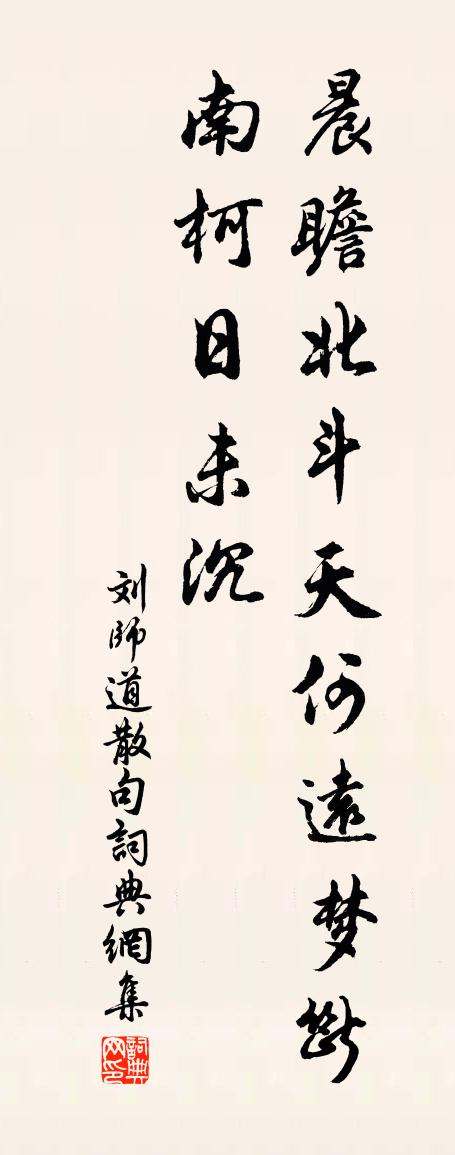 晨瞻北斗天何遠梦斷
南柯日未沉
刘師道散句詞典網集
詞典网印